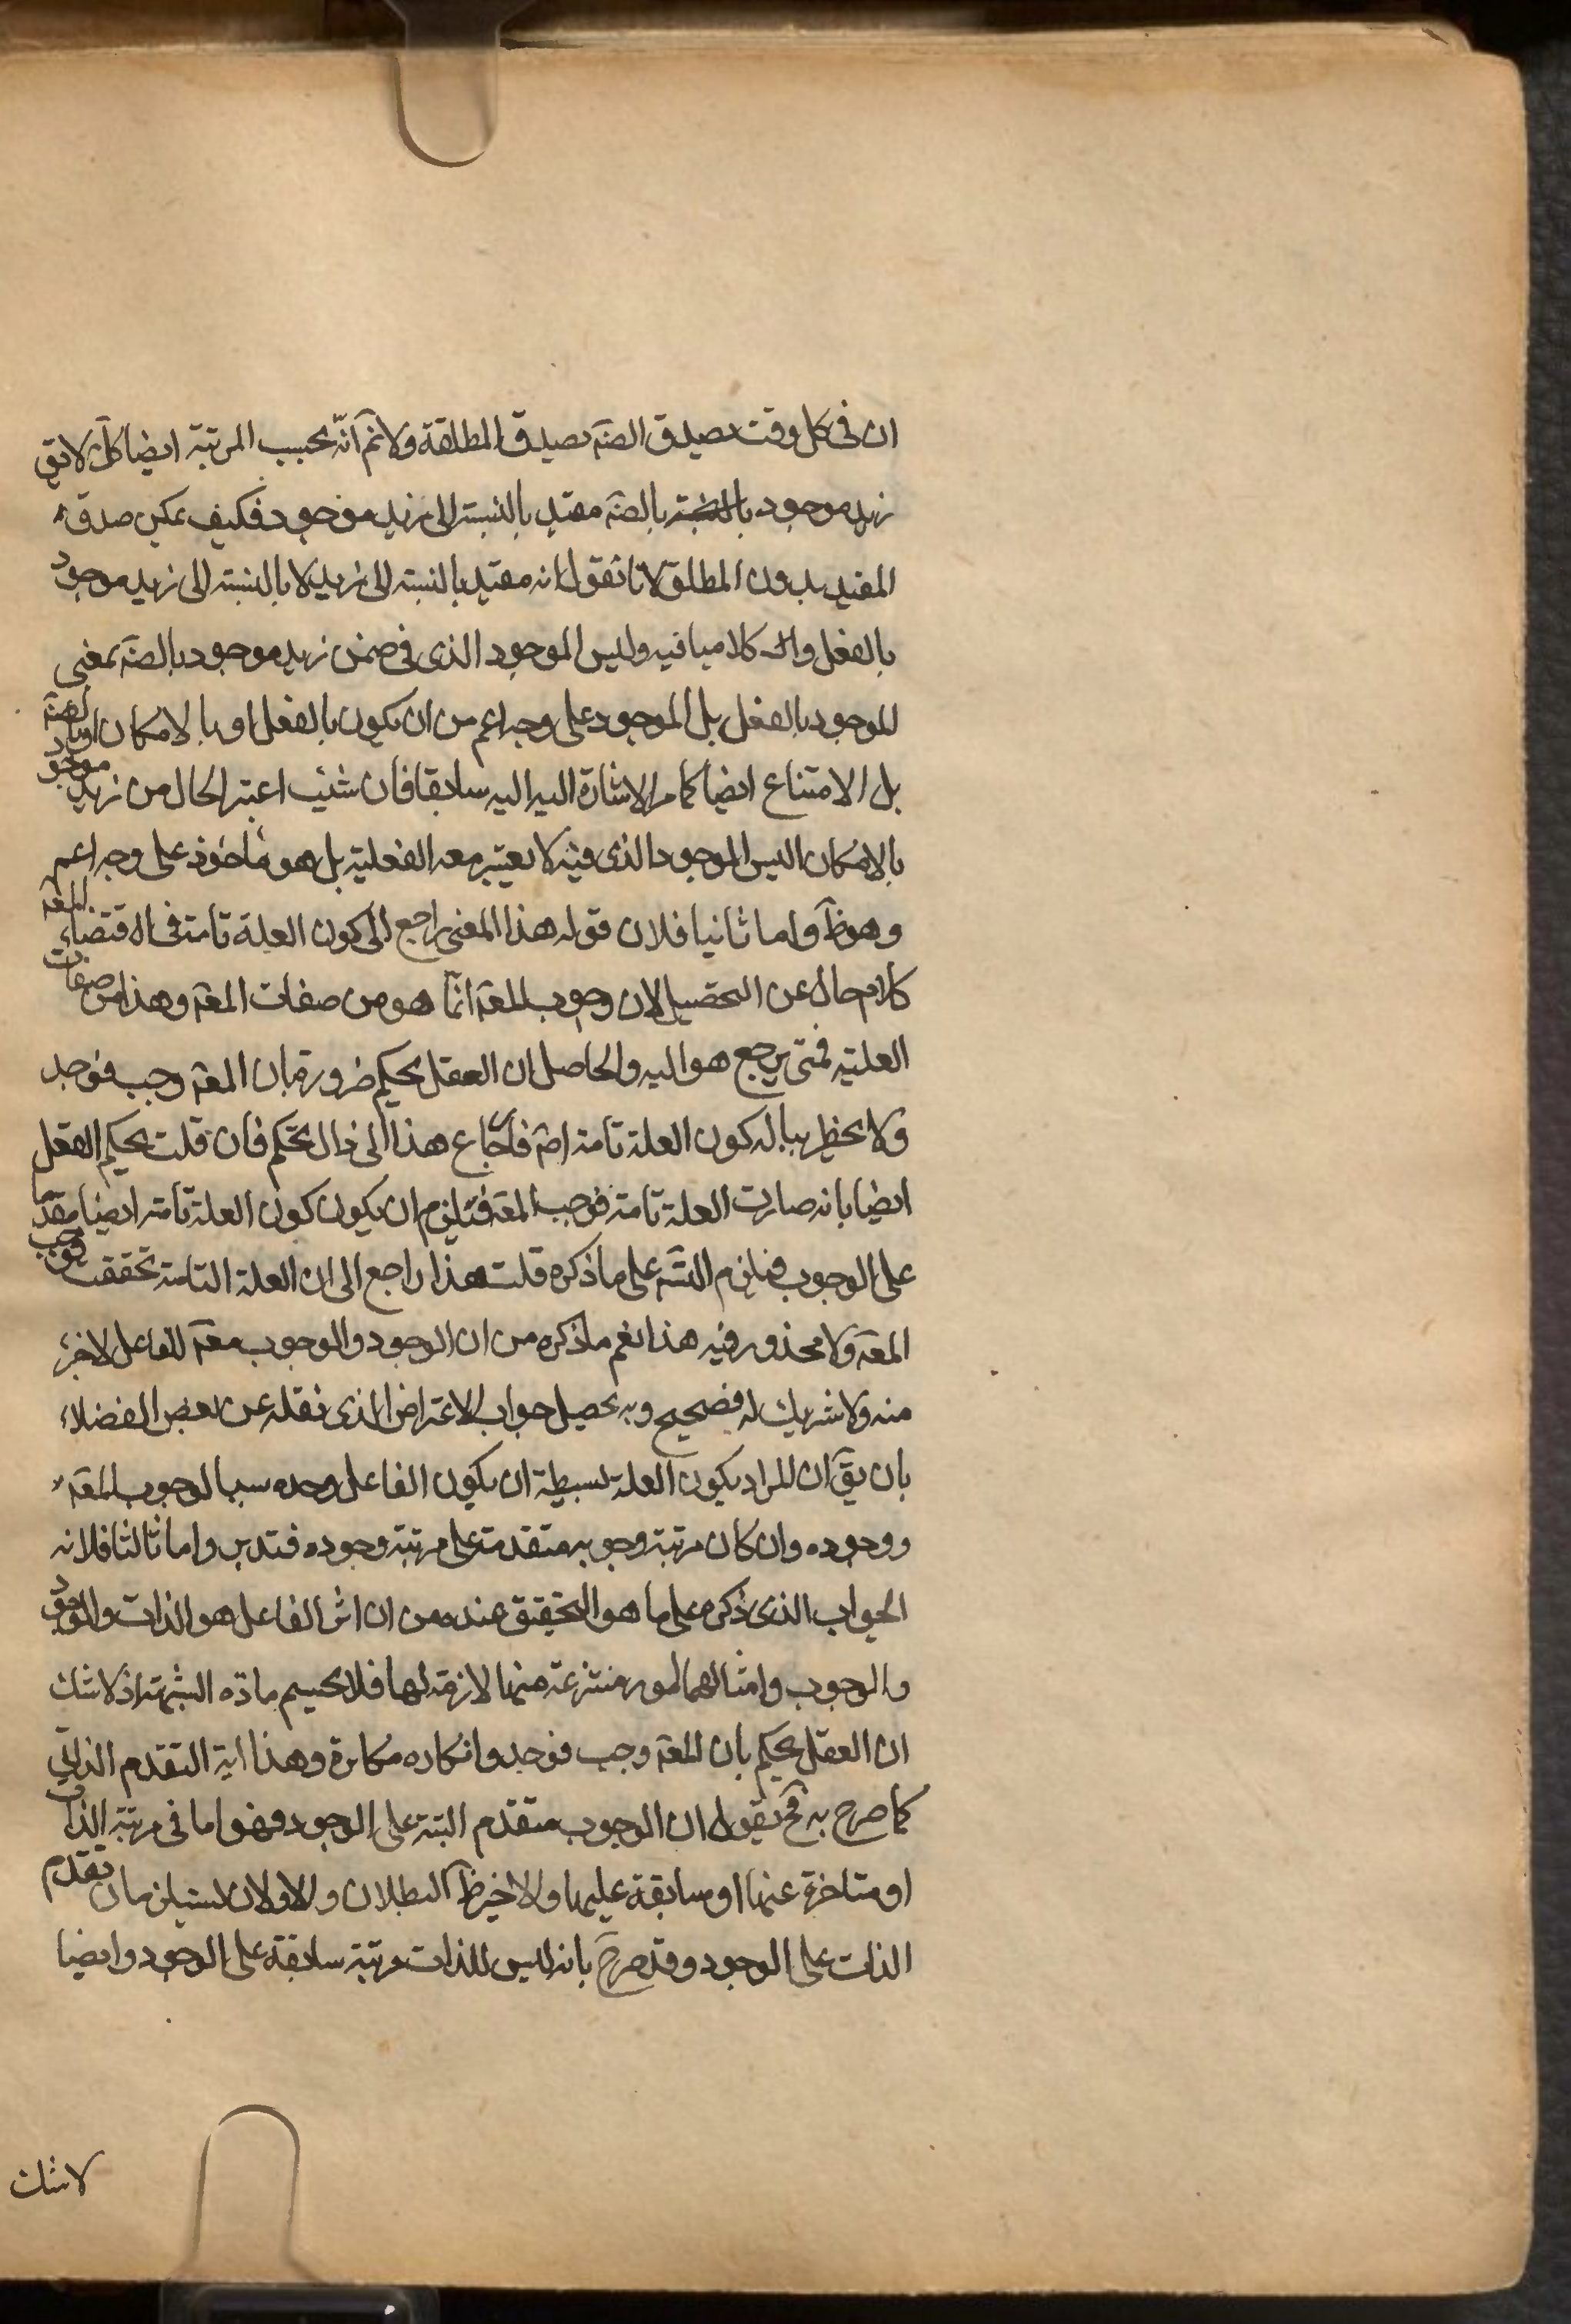 ان فى كل وقت يصدق الضرة يصدق المطلقة ولانم انه بحسب المرتبة ايضا كك لا يق
زيد موجود بالضرة مقيد بالنسبة الى زيد موجود فكيف يمكن صدق
المقيد بدون المطلق لانا نقول انه مقيد بالنسبة الى زيد لا بالنسبة الى زيد موجود
بالفعل والـ كلامنا فيه وليس الموجود الذى فى ضمن زيد موجود بالضرة بمعنى
الموجود بالفعل بل الموجود على وجه اعم من ان يكون بالفعل او بالامكان او بالضرة
بل الامتناع ايضا كما مر الاشارة اليه اليه سابقا فان شئت اعتبر الحال من زيد موجود
بالامكان اليس الموجود الذى فيه لا يعتبر معه الفعلية بل هو مأخوذ على وجه اعم
وهو ظ واما ثانيا فلان قوله هذا المعنى راجع الى كون العلة تامة فى اقتضاء المعه
كلام خال عن التحصيل لان وجوب المعه انما هو من صفات المعه وهذا من صفات
العلية فمتى يرجع هو اليه والحاصل ان العقل يحكم ضرورة بان المعه وجب فوجد
ولا يخطر بباله كون العلة تامة اصم فارجاع هذا الى ذاك تحكم فان قلت يحكم العقل
ايضا بانه صارت العلة تامة فوجب المعه فيلزم ان يكون كون العلة تامة ايضا مقدما
على الوجوب فيلزم التسم على ما ذكره قلت هذا راجع الى ان العلة التامة تحققت فوجب
المعه ولا محذور فيه هذا نعم ما ذكره من ان الوجود والوجوب معه للفاعل لا جزء
منه ولا شريك له فصحيح وبه يحصل جواب الاعتراض الذى نقله عن بعض الفضلاء
بان يق ان المراد بكون العلة بسيطة ان يكون الفاعل وحده سببا لوجوب المعه
ووجوده وان كان مرتبة وجوبه متقدمة على مرتبة وجوده فتدبر واما ثالثا فلانه
الجواب الذى ذكره على ما هو التحقيق عنده من ان اثر الفاعل هو الذات والوجود
والوجوب وامثالهما امور منتزعة منها لازمة لها فلا يحسم مادة الشبهة اذ لا شك
ان العقل يحكم بان المعه وجب فوجد وانكاره مكابرة وهذا اية التقدم الذاتى
كما صرح به فح نقول ان الوجوب متقدم البتة على الوجود فهو اما فى مرتبة الذات
او متاخرة عنها او سابقة عليها والاخير ظ البطلان والاولان يستلزمان تقدم
الذات على الوجود وقد صرح بانه ليس للذات مرتبة سابقة على الوجود وايضا
لا شك